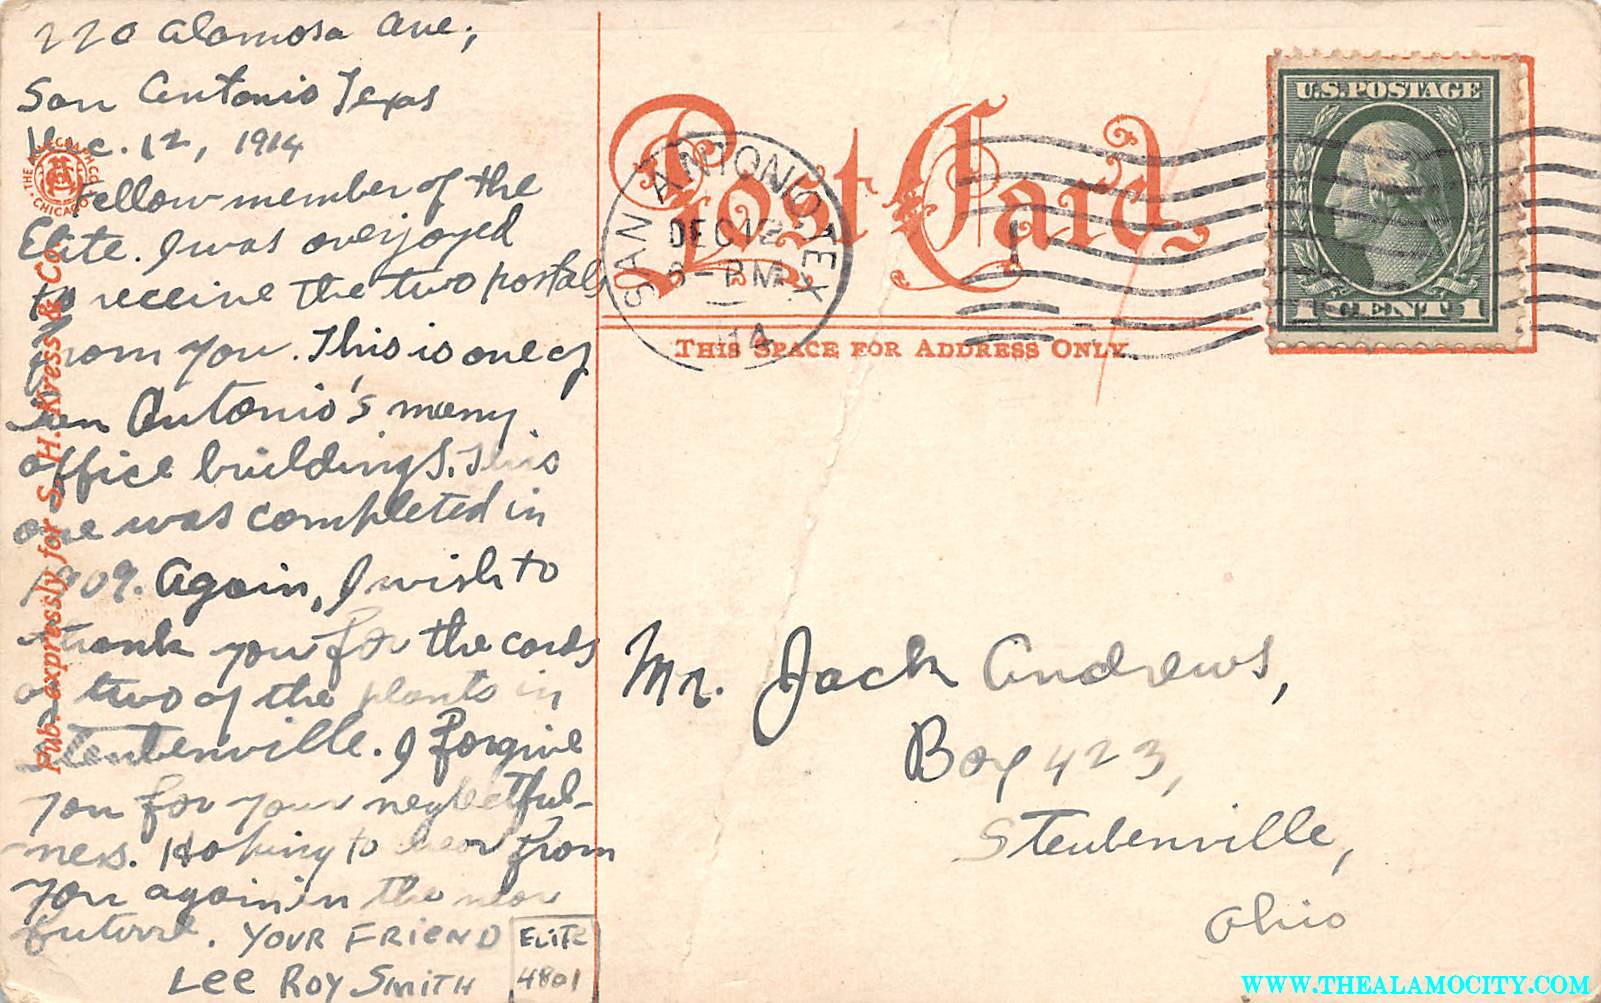 220 Alamosa Ave,
San Antonio Texas
Dec. 12, 1914
Fellow-member of the
Elite. I was overjoyed
to receive the two postals
from you. This is one of
San Antonio's many
office buildings. This
one was completed in
1909. Again, I wish to
thank you for the cards
of two of the plants in
Steubenville. I forgive
you for your neglectful-
ness. Hoping to hear from
you again in the near
future. YOUR FRIEND
LEE ROY SMITH
ELITE
4801
Pub. expressly for S. H. Kress & Co.
CHICAGO
Post Card
SAN ANTONIO, TEX
DEC 12
PM
14
THIS SPACE FOR ADDRESS ONLY.
U.S. POSTAGE
1 CENT 1
Mr. Jack Andrews,
Box 423,
Steubenville,
Ohio
WWW.THEALAMOCITY.COM